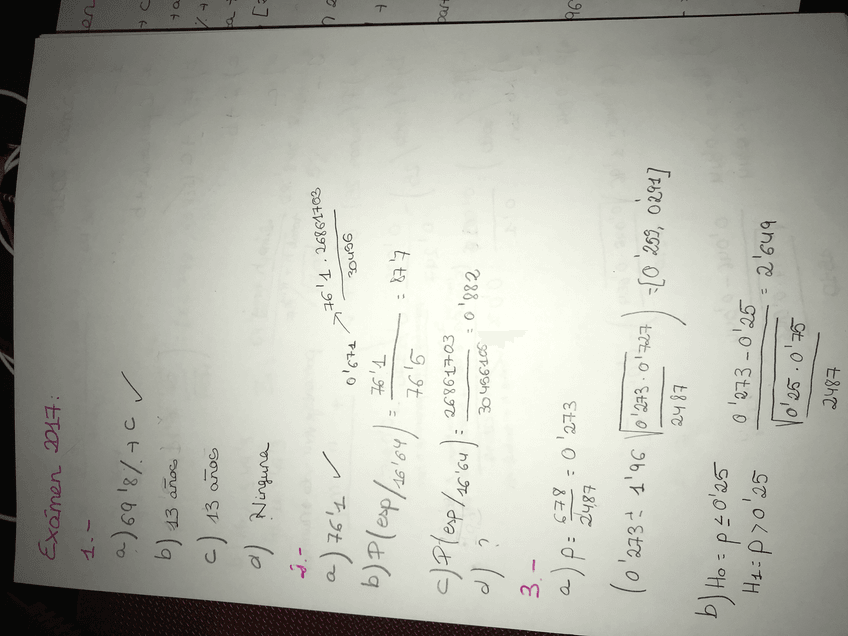 Exámen 2017:
1.-
a) 69'8% → C ✓
b) 13 años
c) 13 años
d) Ninguna
2.-
a) 76'1 ✓
0'671 ↗ 76'1 · 26861703 / 30496
b) P(esp/16'64) = 76'1 / 76'5 = 87'7
c) P(esp/16'64) = 26861703 / 30456105 = 0'882
d) ?
3.-
a) p = 678 / 2487 = 0'273
(0'273 ± 1'96 √(0'273 · 0'727 / 2487)) = [0'259, 0'291]
b) H0 = p ≤ 0'25
H1 = p > 0'25
0'273 - 0'25 / √(0'25 · 0'75 / 2487) = 2'649